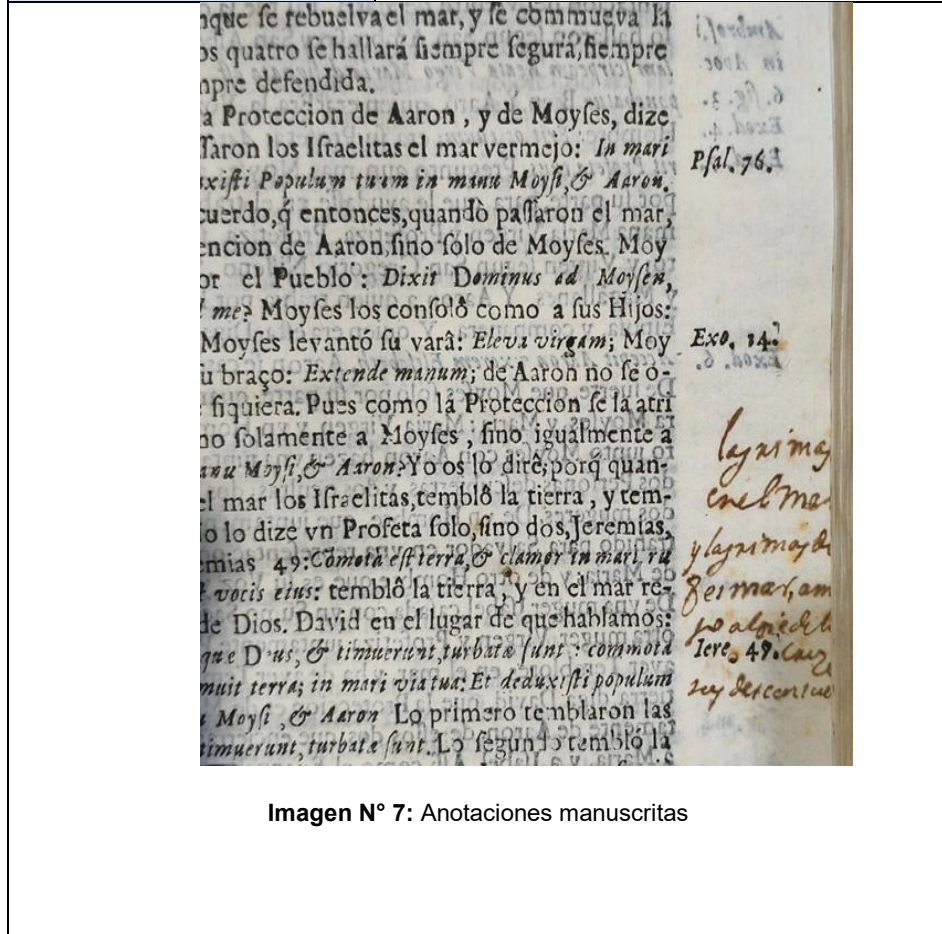 nque ſe rebuelva el mar, y ſe commueva la
os quatro ſe hallará ſiempre ſegura, ſiempre
npre defendida.
a Proteccion de Aaron , y de Moyſes, dize
ſſaron los Iſraelitas el mar vermejo: In mari
xiſti Populum tuum in manu Moyſi, & Aaron.
Pſal. 76.
cuerdo, q̃ entonces, quandò paſſaron el mar,
encion de Aaron, ſino ſolo de Moyſes. Moy
or el Pueblo : Dixit Dominus ad Moyſen,
me? Moyſes los conſolô como a ſus Hijos:
Moyſes levantó ſu varâ: Eleva virgam; Moy
Exo. 14.
u braço: Extende manum; de Aaron no ſe o-
ſiquiera. Pues como la Proteccion ſe la atri
no ſolamente a Moyſes , ſino igualmente a
anu Moyſi, & Aaron? Yo os lo dirê; porq̃ quan-
el mar los Iſraelitas, temblô la tierra , y tem-
o lo dize vn Profeta ſolo, ſino dos, Jeremias,
emias 49: Comota eſt terra, & clamor in mari ru
vocis eius: temblô la tierra; y en el mar re-
de Dios. David en el lugar de que hablamos:
que D us, & timuerunt, turbatæ ſunt : commota
nuit terra; in mari via tua: Et deduxiſti populum
Moyſi , & Aaron Lo primero temblaron las
timuerunt, turbatæ ſunt. Lo ſegundo tembló la
lagrimas
en el ma
y lagrimas de
Iere. 49.
Imagen N° 7: Anotaciones manuscritas